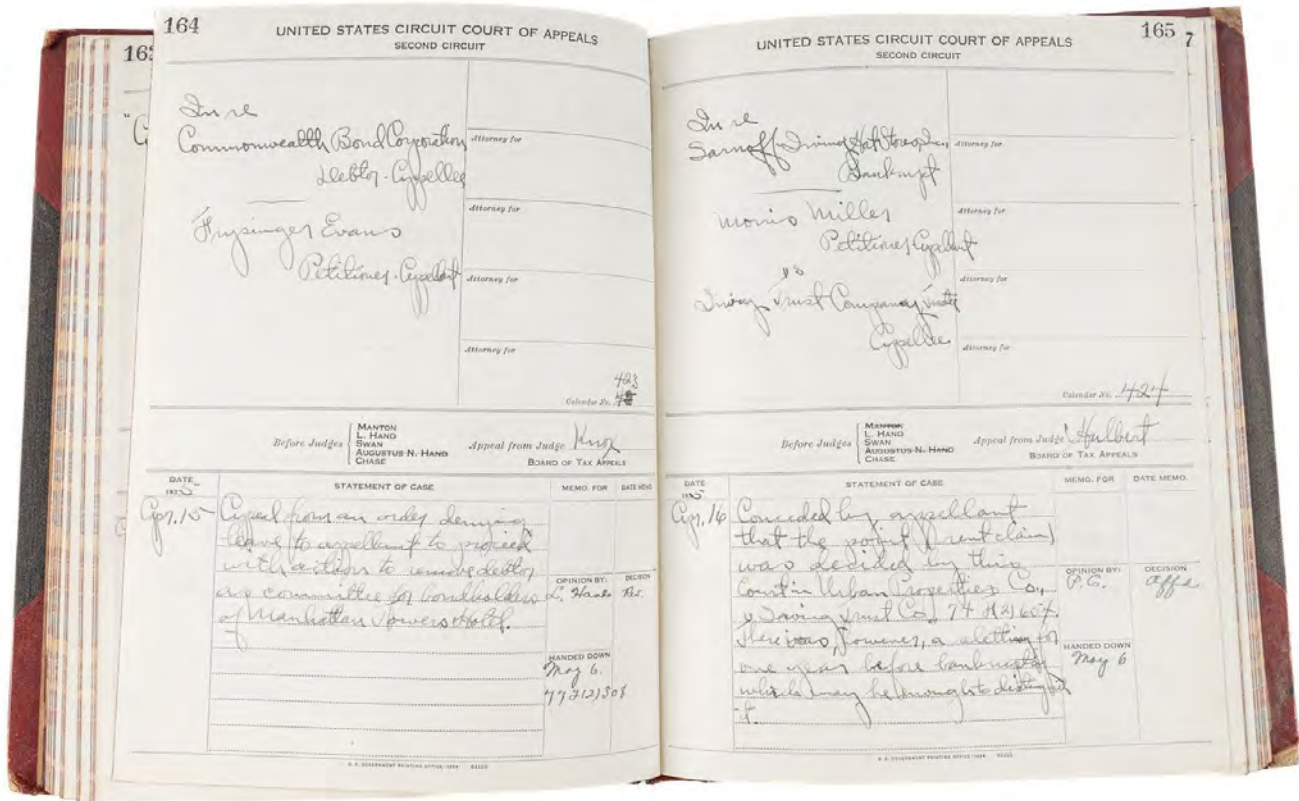 164
UNITED STATES CIRCUIT COURT OF APPEALS
SECOND CIRCUIT
In re
Commonwealth Bond Corporation
Debtor-Appellee
Frysinger Evans
Petitioner-Appellant
Attorney for
Attorney for
Attorney for
Attorney for
423
Calendar No.
Before Judges
MANTON
L. HAND
SWAN
AUGUSTUS N. HAND
CHASE
Appeal from Judge Knox
BOARD OF TAX APPEALS
DATE
1935
STATEMENT OF CASE
MEMO. FOR
DATE MEMO.
Apr. 15
Appeal from an order denying
leave to appellant to proceed
with actions to remove debtor
as committee for bondholders
of Manhattan Towers Hotel.
OPINION BY:
L. Hand
DECISION
Rev.
HANDED DOWN
May 6.
77 F(2) 308
U. S. GOVERNMENT PRINTING OFFICE
163
165
7
UNITED STATES CIRCUIT COURT OF APPEALS
SECOND CIRCUIT
In re
Sarnoff-Irving Hat Stores, Inc.
Bankrupt
Morris Miller
Petitioner-Appellant
vs
Irving Trust Company, Trustee
Appellee
Attorney for
Attorney for
Attorney for
Attorney for
Calendar No. 424
Before Judges
MANTON
L. HAND
SWAN
AUGUSTUS N. HAND
CHASE
Appeal from Judge Hulbert
BOARD OF TAX APPEALS
DATE
1935
STATEMENT OF CASE
MEMO. FOR
DATE MEMO.
Apr. 16
Conceded by appellant
that the point (rent claim)
was decided by this
Court in Urban Properties Co.,
v Irving Trust Co., 74 F(2) 654.
There was, however, a letting for
one year before bankruptcy
which may be enough to distinguish
it.
OPINION BY:
P.C.
DECISION
Affd
HANDED DOWN
May 6
U. S. GOVERNMENT PRINTING OFFICE